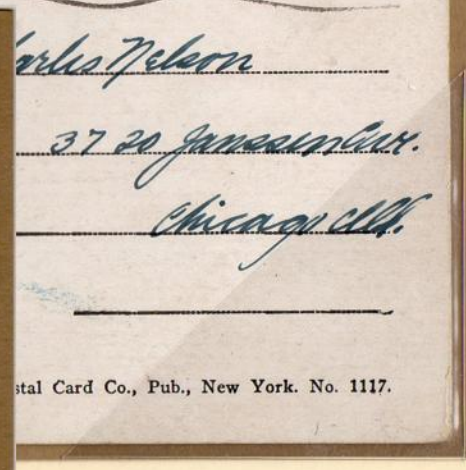 arles Nelson
3720 Janssen Ave.
Chicago Ill.
stal Card Co., Pub., New York. No. 1117.